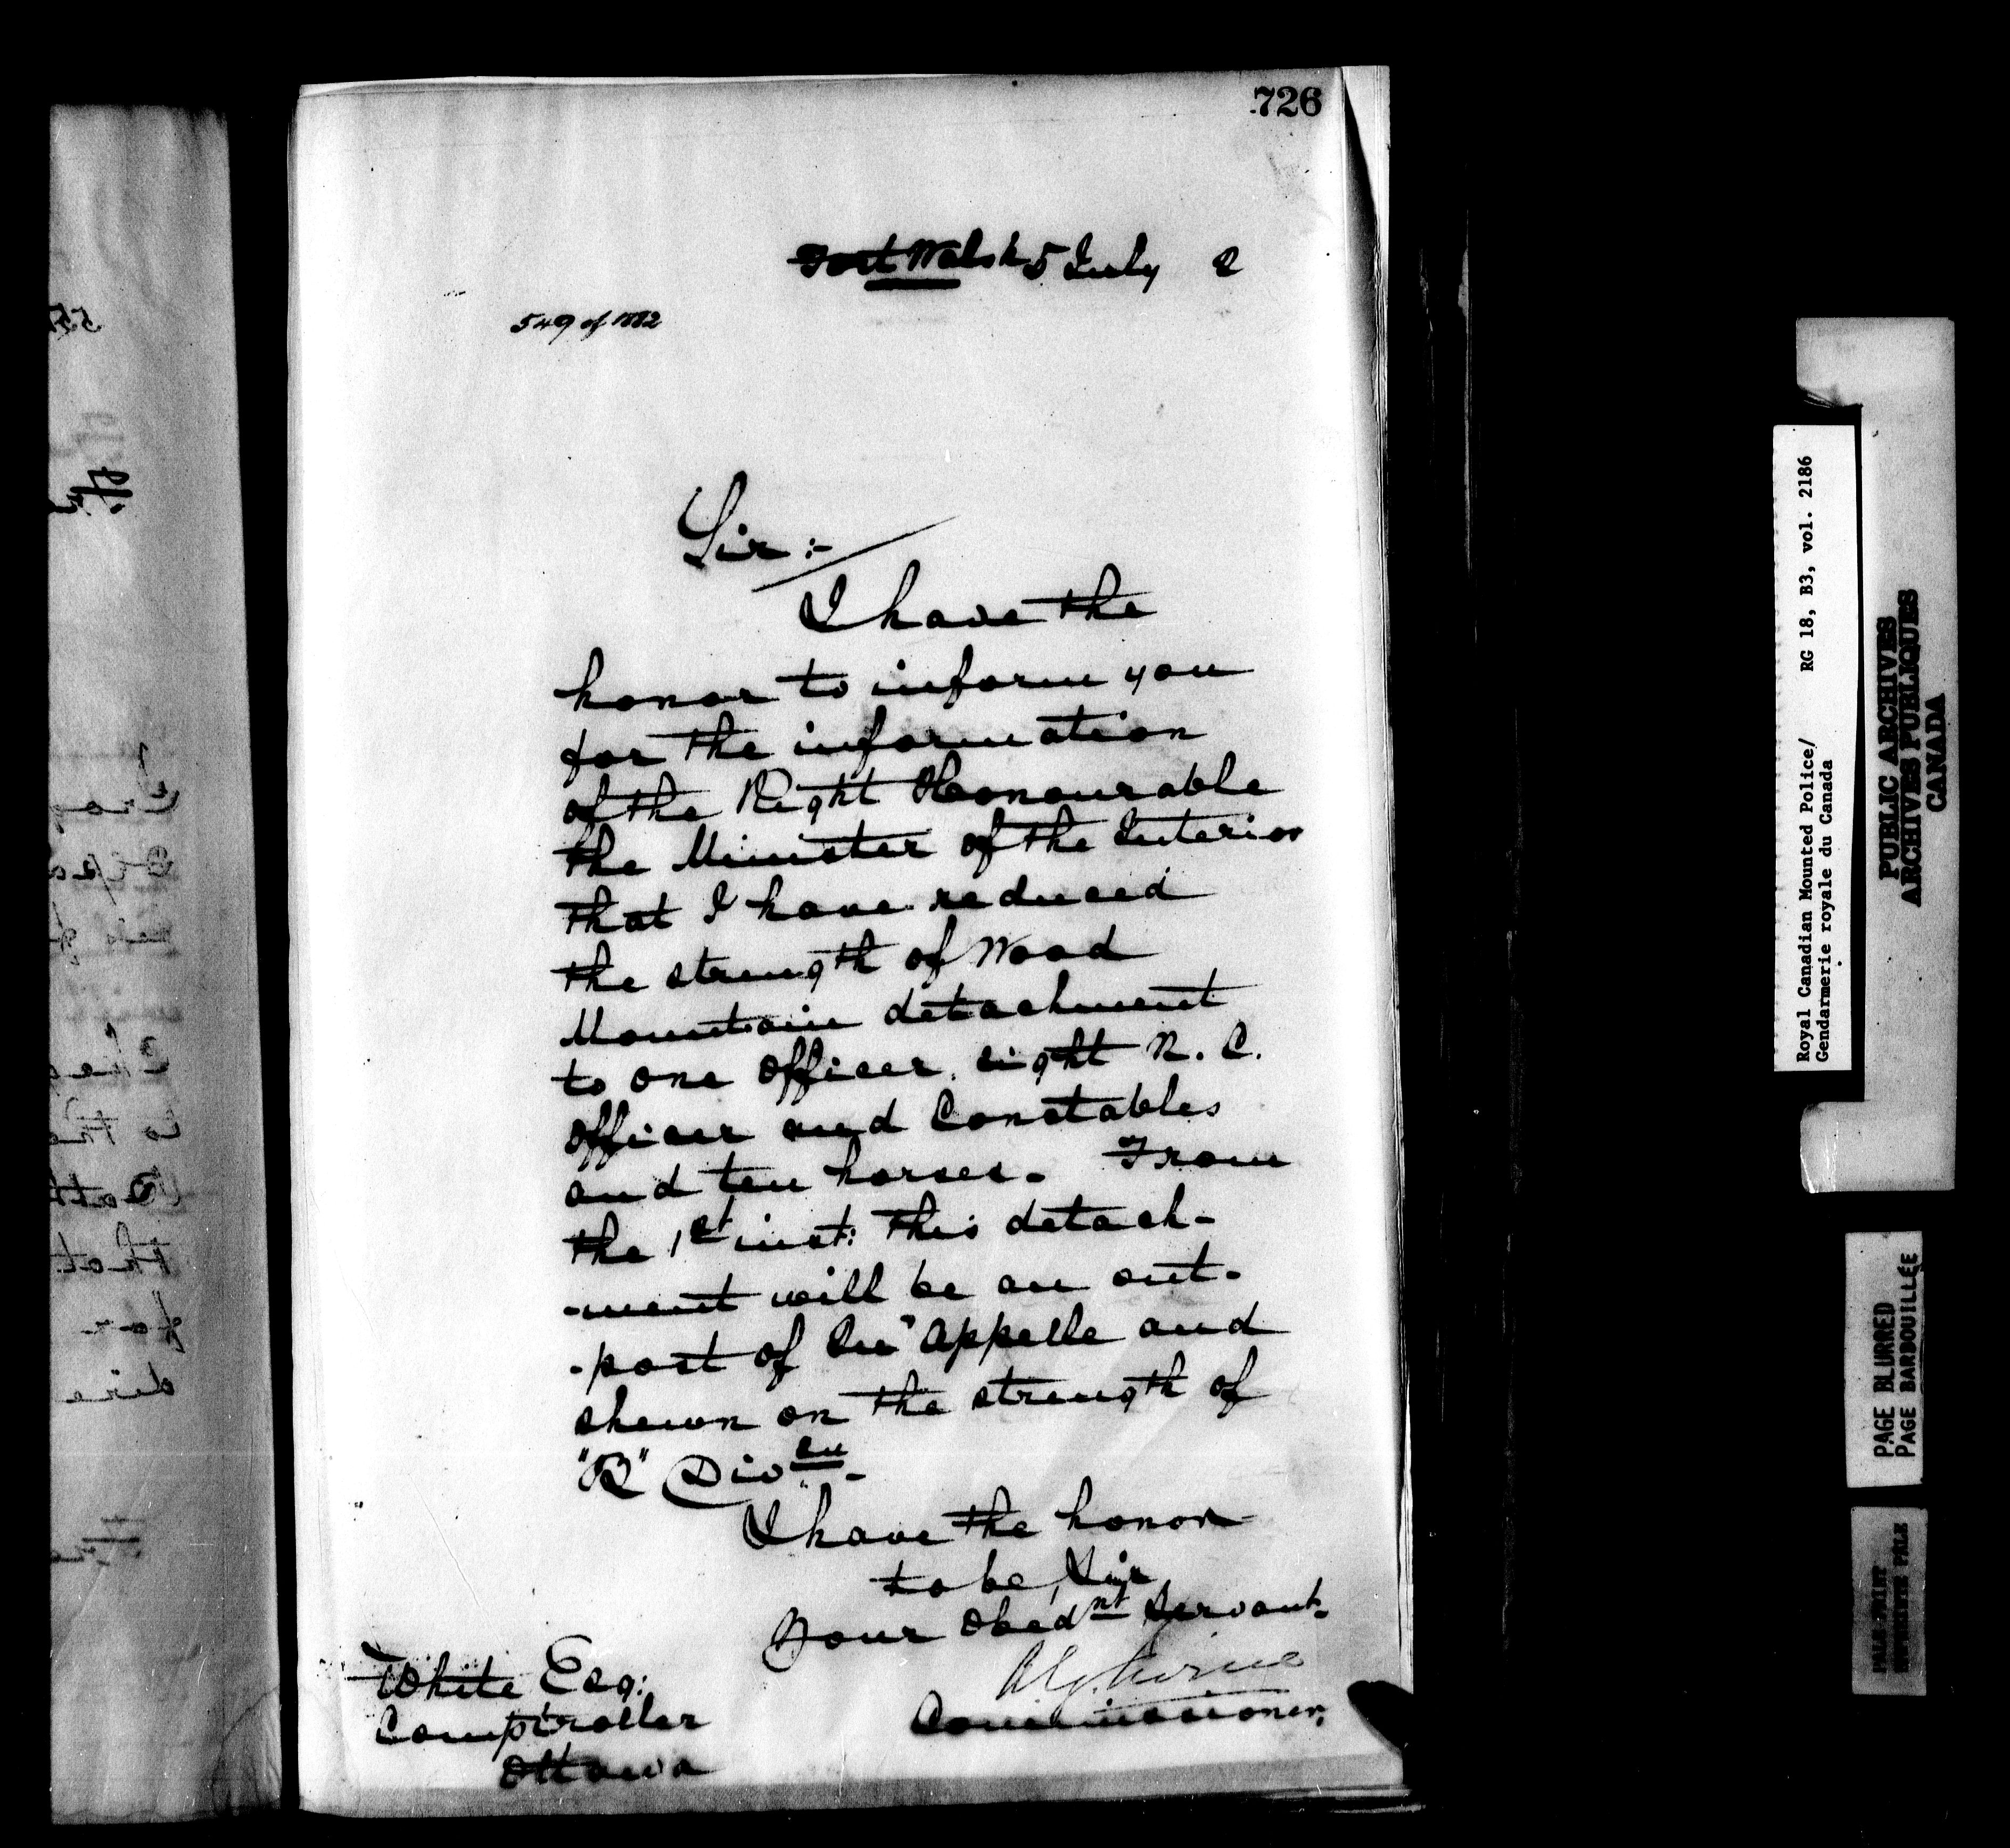 726
Fort Walsh 5 July 2
549 of 1882
Sir :-
I have the
honor to inform you
for the information
of the Right Honourable
the Minister of the Interior
that I have reduced
the strength of Wood
Mountain detachment
to one officer, eight N. C.
officer and Constables
and ten horses. From
the 1st inst: this detach-
-ment will be an out-
-post of Qu'Appelle and
shewn on the strength of
"B" Divon.
I have the honor
to be, Sir
Your Obednt Servant.
A G. Irvine
Commissioner,
White Esq:
Comptroller
Ottawa
Royal Canadian Mounted Police/ RG 18, B3, vol. 2186
Gendarmerie royale du Canada
PUBLIC ARCHIVES
ARCHIVES PUBLIQUES
CANADA
PAGE BLURRED
PAGE BARBOUILLÉE
PALE PRINT